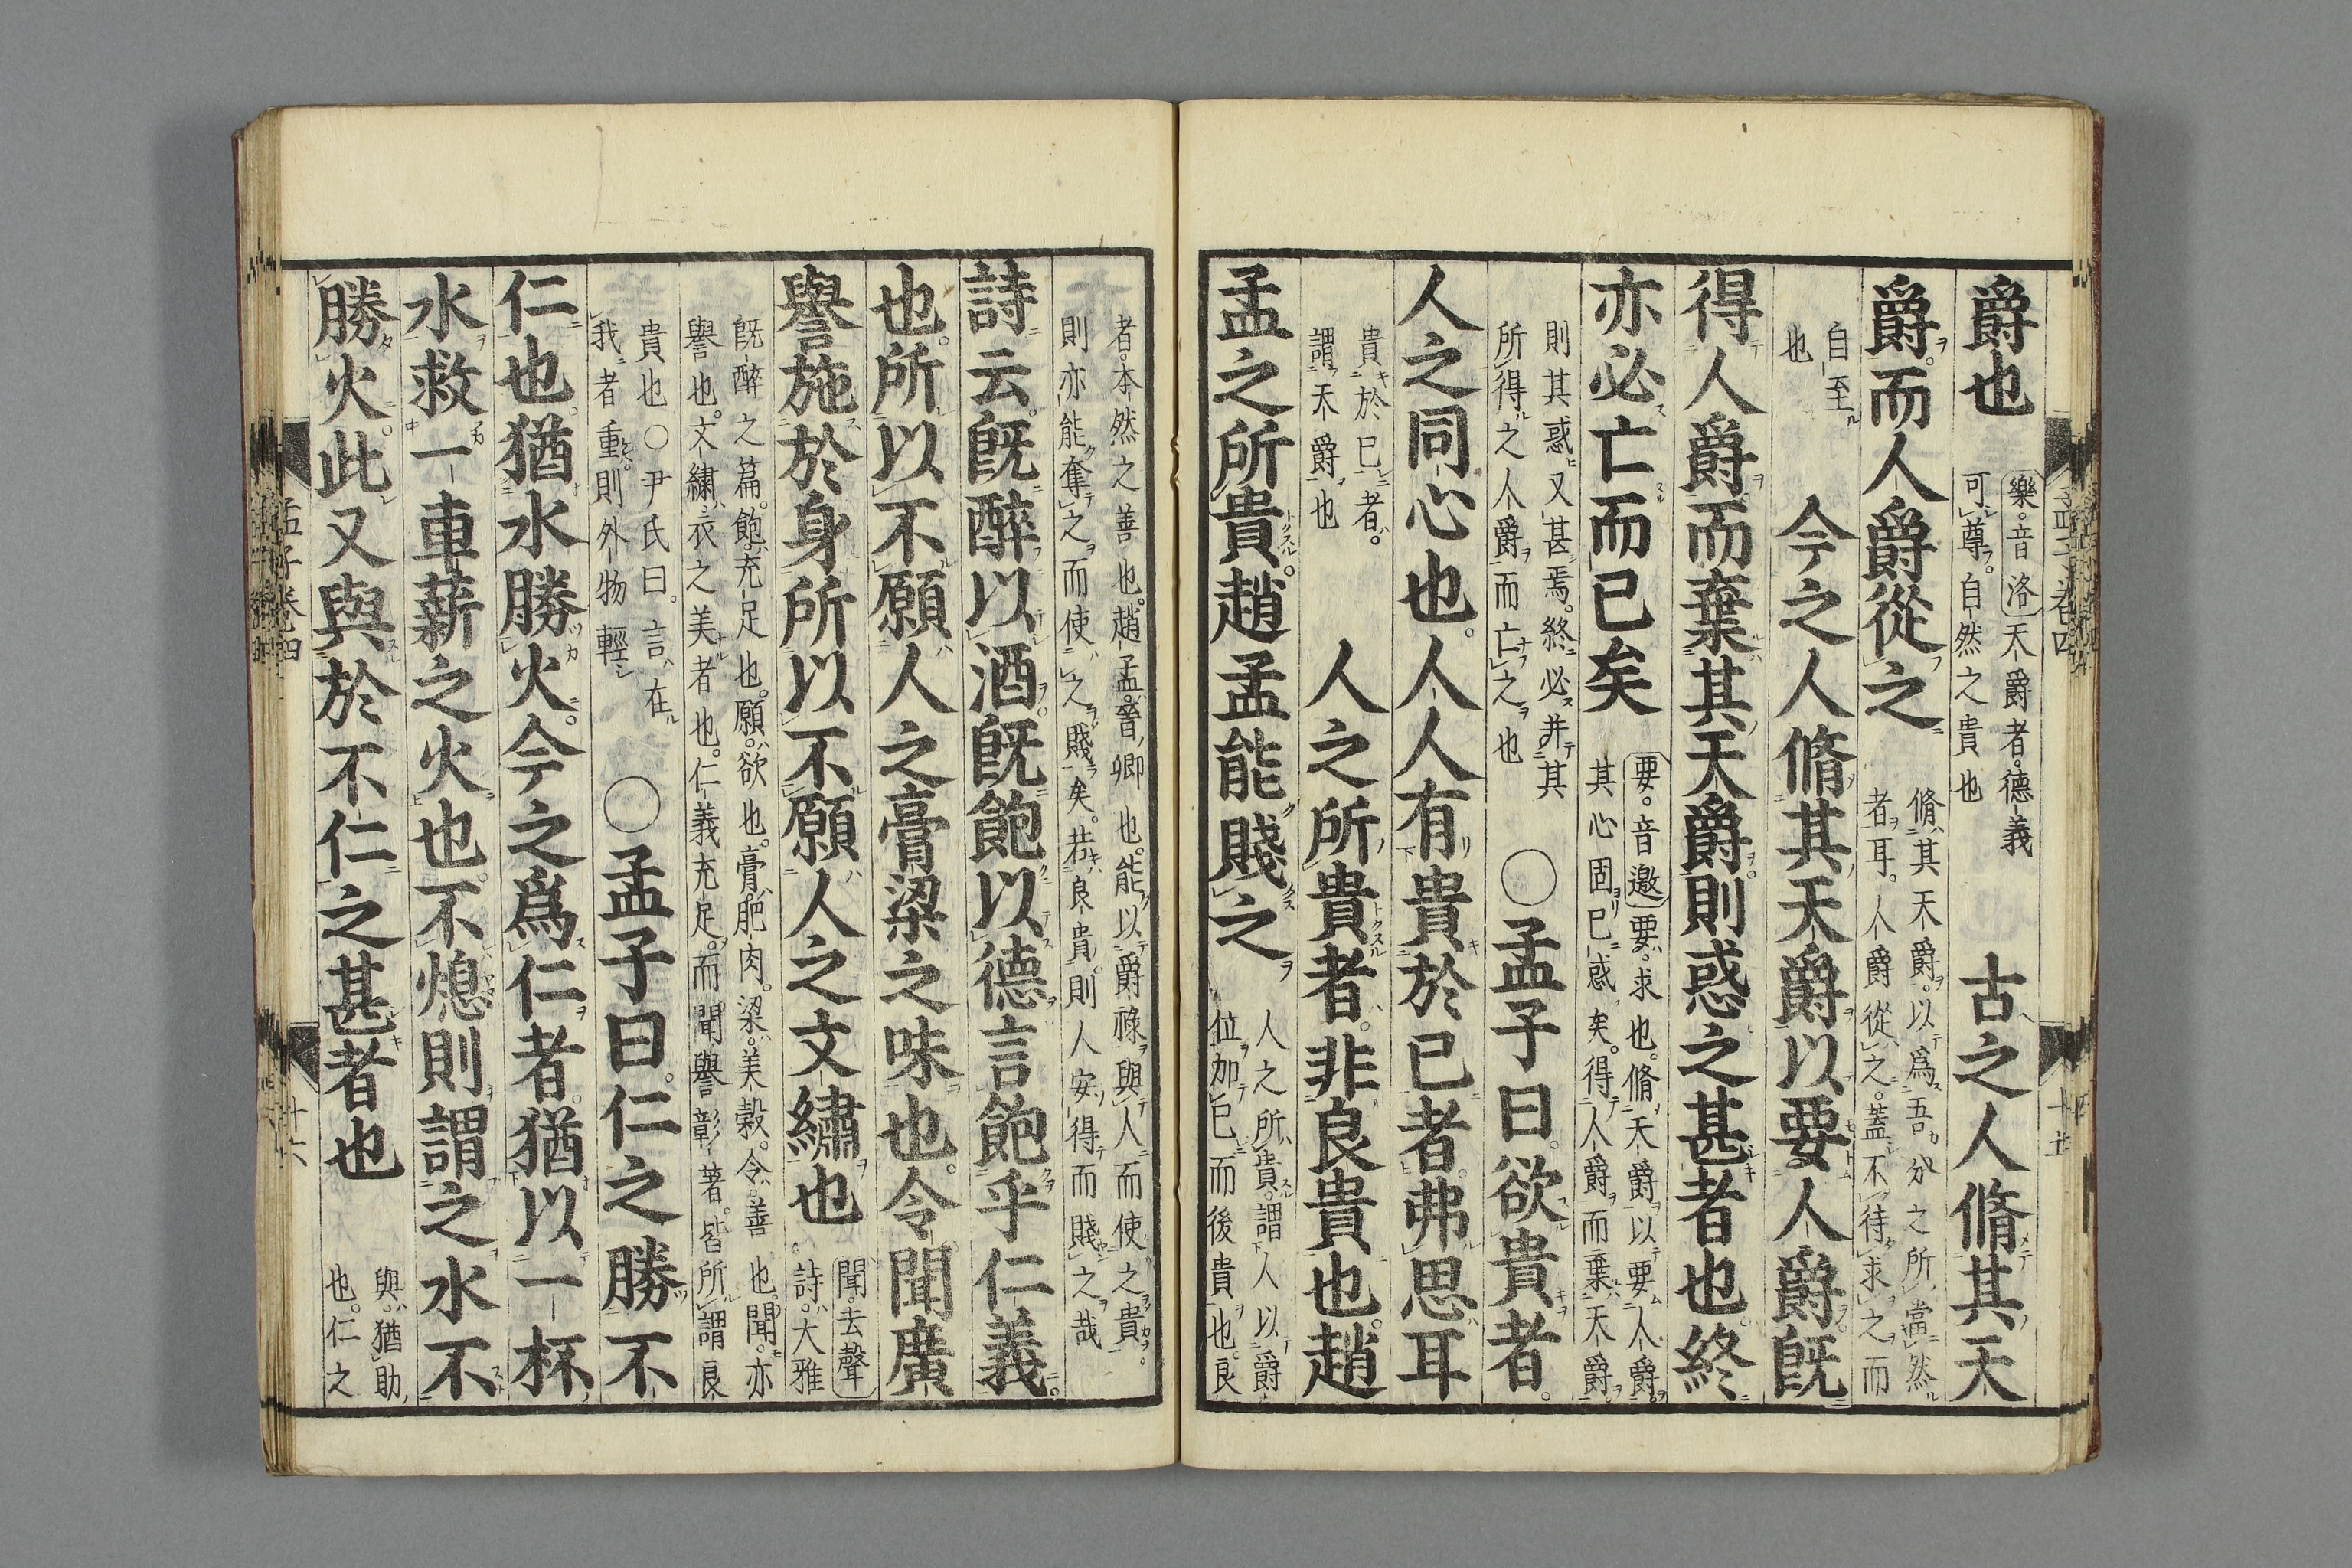 爵也 樂音洛天爵者德義可尊自然之貴也 古之人脩其天
爵而人爵從之 脩其天爵以爲吾分之所當然者耳人爵從之蓋不待求之而
自至也 今之人脩其天爵以要人爵既
得人爵而棄其天爵則惑之甚者也終
亦必亡而已矣 要音邀要求也脩天爵以要人爵其心固已惑矣得人爵而棄天爵
則其惑又甚焉終必并其所得之人爵而亡之也 〇孟子曰欲貴者
人之同心也人人有貴於己者弗思耳
貴於已者謂天爵也 人之所貴者非良貴也趙
孟之所貴趙孟能賤之 人之所貴謂人以爵位加已而後貴也良
者本然之善也趙孟晉卿也能以爵祿與人而使之貴則亦能奪之而使之賤矣若良貴則人安得而賤之哉
詩云既醉以酒既飽以德言飽乎仁義
也所以不願人之膏粱之味也令聞廣
譽施於身所以不願人之文繡也 聞去聲詩大雅
既醉之篇飽充足也願欲也膏肥肉粱美穀令善也聞亦譽也文繡衣之美者也仁義充足而聞譽彰著皆所謂良
貴也〇尹氏曰言在我者重則外物輕 〇孟子曰仁之勝不
仁也猶水勝火今之爲仁者猶以一杯
水救一車薪之火也不熄則謂之水不
勝火此又與於不仁之甚者也 與猶助也仁之
孟子卷四
十六